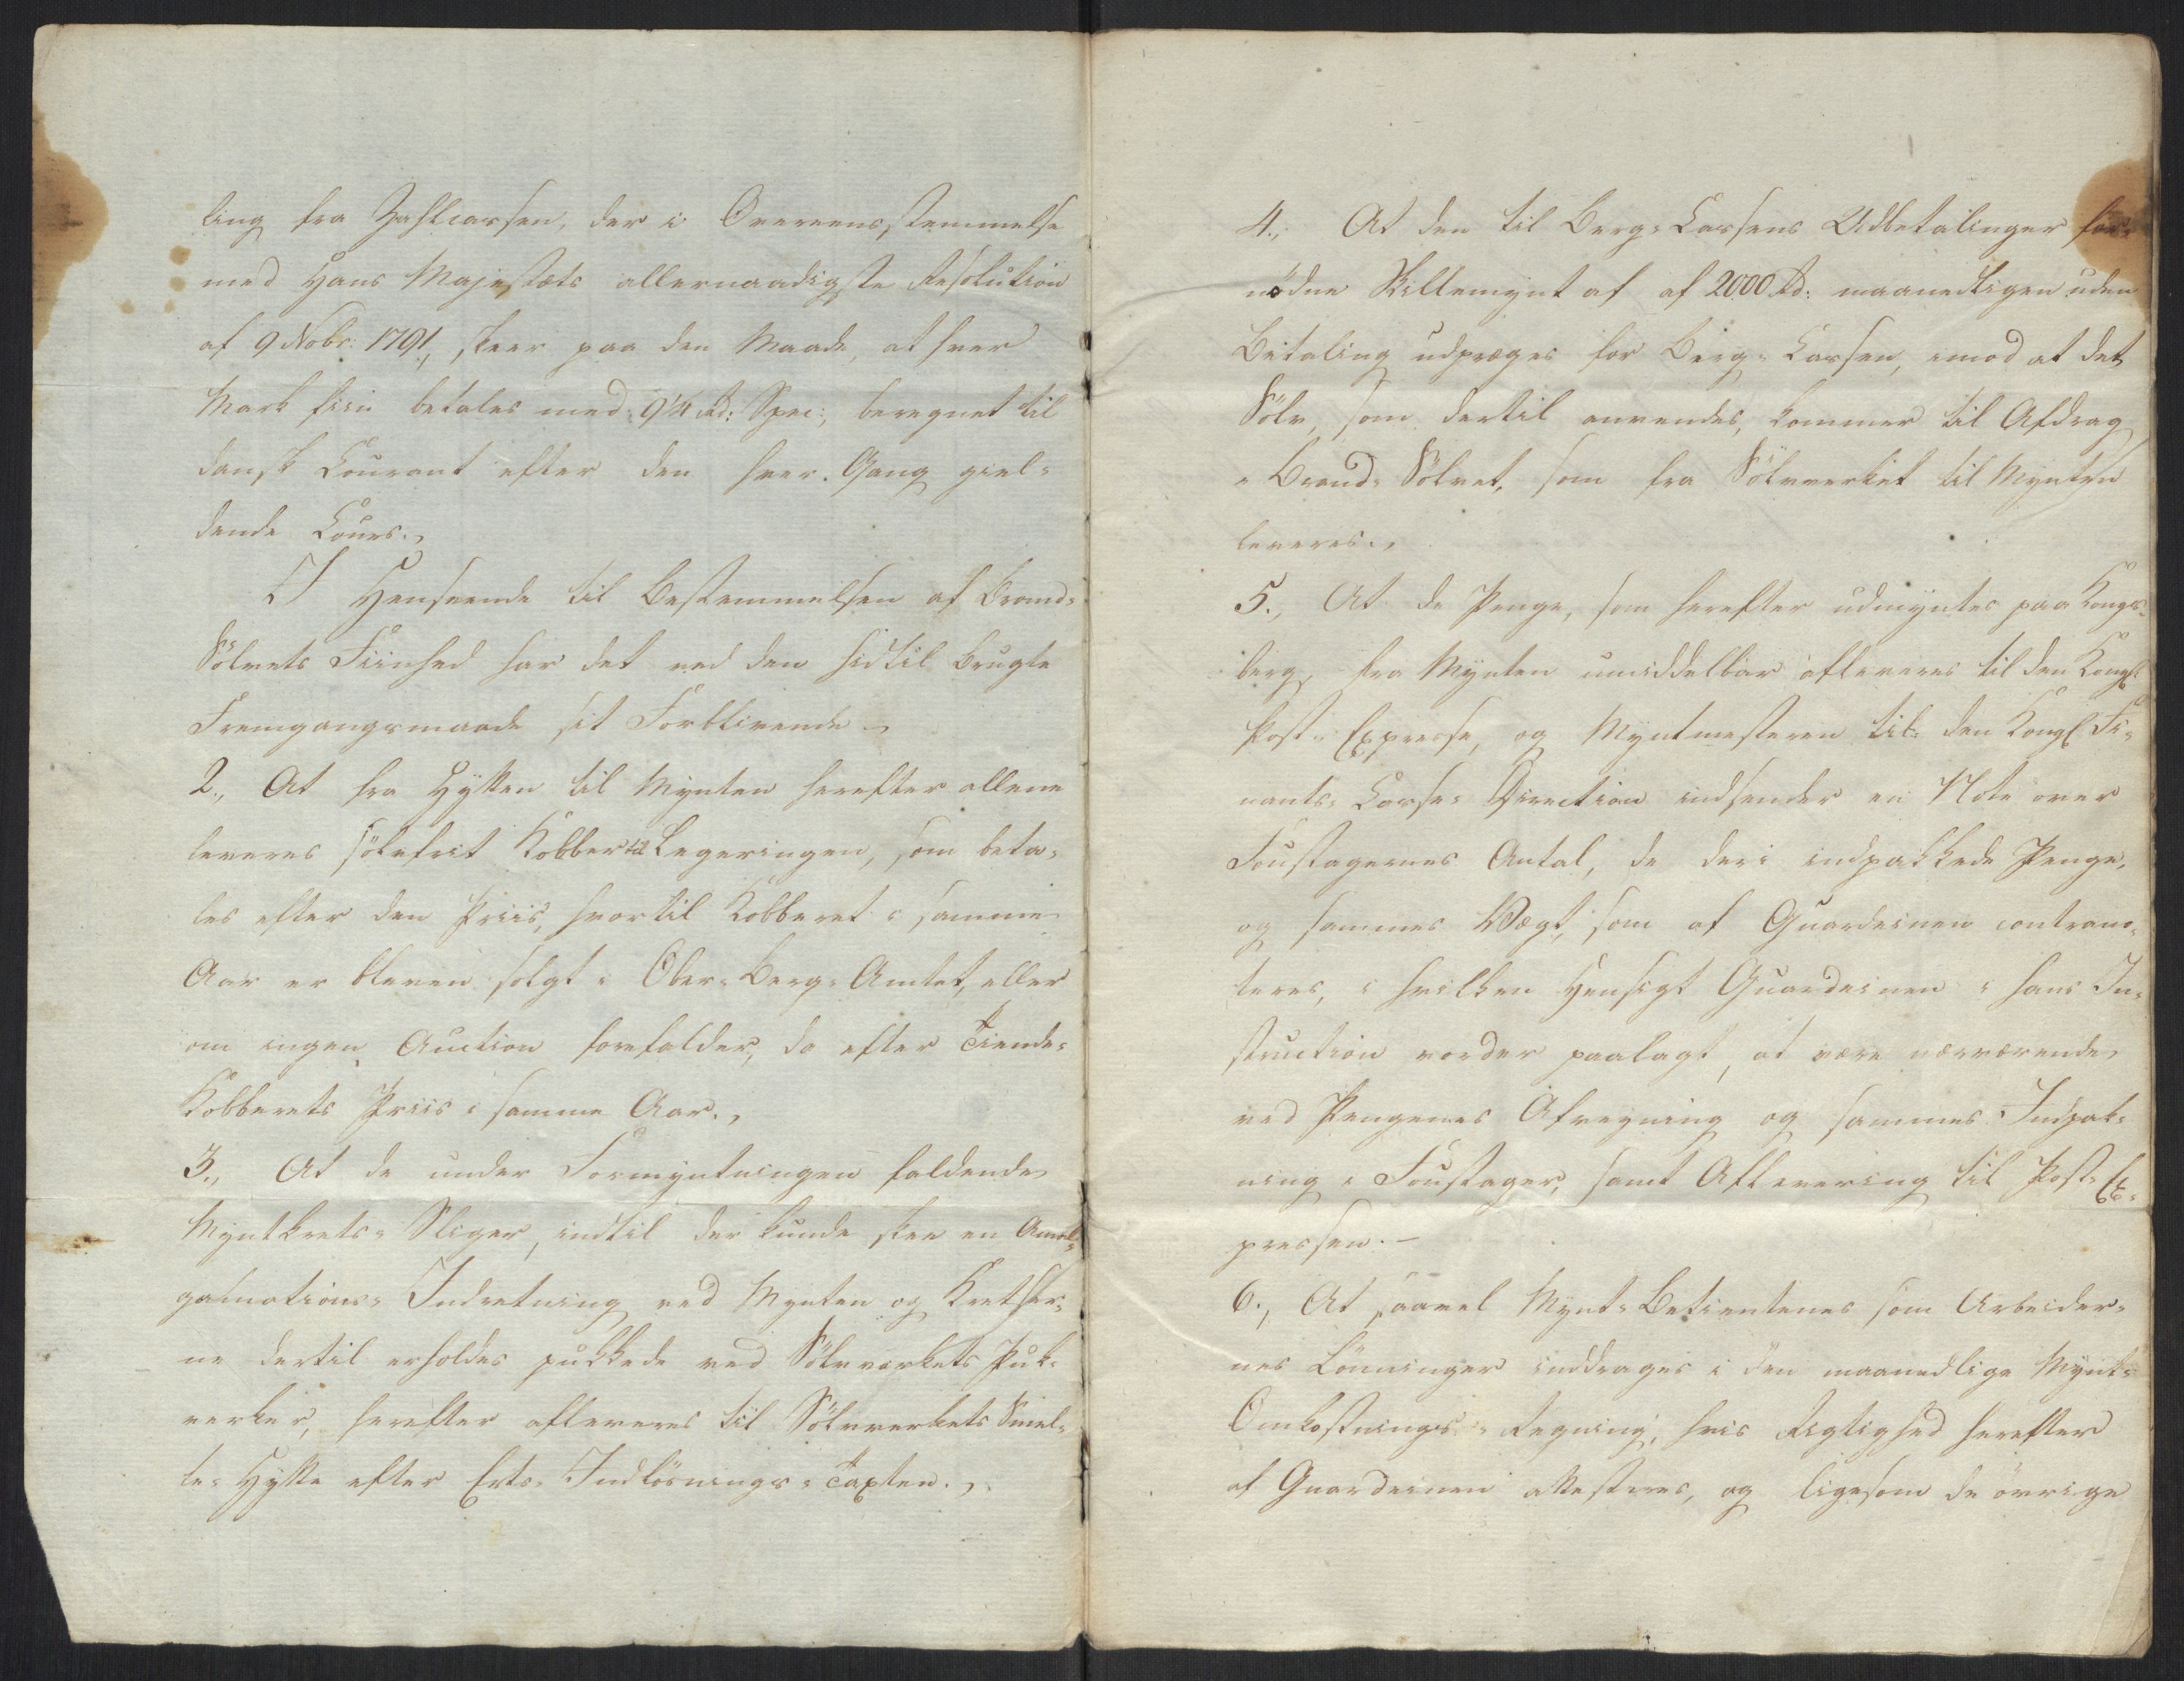 ling fra Zahlcassen, der i Overeensstemmelse
med Hans Majestæts allernaadigste Resolution
af 9 Nobr: 1791, skeer paa den Maade, at hver
Mark fiin betales med 9¼ Rd: Spec:, beregnet til
dansk Courant efter den hver Gang giel-
dende Cours.,
I Henseende til Bestemmelsen af Brand-
Sölvets Fiinhed har det ved den hidtil brugte
Fremgangsmaade sit Forblivende.
2., At fra Hytten til Mynten herefter allene
leveres sölvfrit Kobber til Legeringen, som beta-
les efter den Priis, hvortil Kobberet i samme
Aar er bleven solgt i Ober-Berg-Amtet, eller
om ingen Auction forefalder, da efter Tiende-
Kobberets Priis i samme Aar.,
3., At de under Formyntningen faldende
Myntkrets-Sliger, indtil der kunde skee en Amal-
gamations-Indretning ved Mynten og Kretser-
ne dertil erholdes pukkede ved Sölvværkets Puk-
verker, herefter afleveres til Sölvverkets Smel-
te-Hytte efter Erts-Indlösnings-Taxten.,
4., At den til Berg-Cassens Udbetalinger for-
nödne Skillemynt af af 2000 Rd: maanedtligen uden
Betaling udpræges for Berg-Cassen, imod at det
Sölv, som dertil anvendes, kommer til Afdrag
i Brand-Sölvet, som fra Sölvverket til Mynten
leveres.,
5., At de Penge, som herefter udmyntes paa Kongs-
berg, fra Mynten umiddelbar afleveres til den Kongl
Post-Expresse, og Myntmesteren til den Kongl Fi-
nants-Casse-Direction indsender en Note over
Foustagernes Antal, de deri indpakkede Penge,
og sammes Vægt, som af Guardeinen contrano-
teres, i hvilken Hensigt Guardeinen i hans In-
struction vorder paalagt, at være nærværende
ved Pengenes Afveyning og sammes Indpak-
ning i Foustager, samt Aflevering til Post-Ex-
pressen.-
6., At saavel Mynt-Betientenes som Arbeider-
nes Lönninger inddrages i den maanedlige Mynt-
Omkostnings-Regning, hvis Rigtighed herefter
af Guardeinen attesteres, og ligesom de övrige